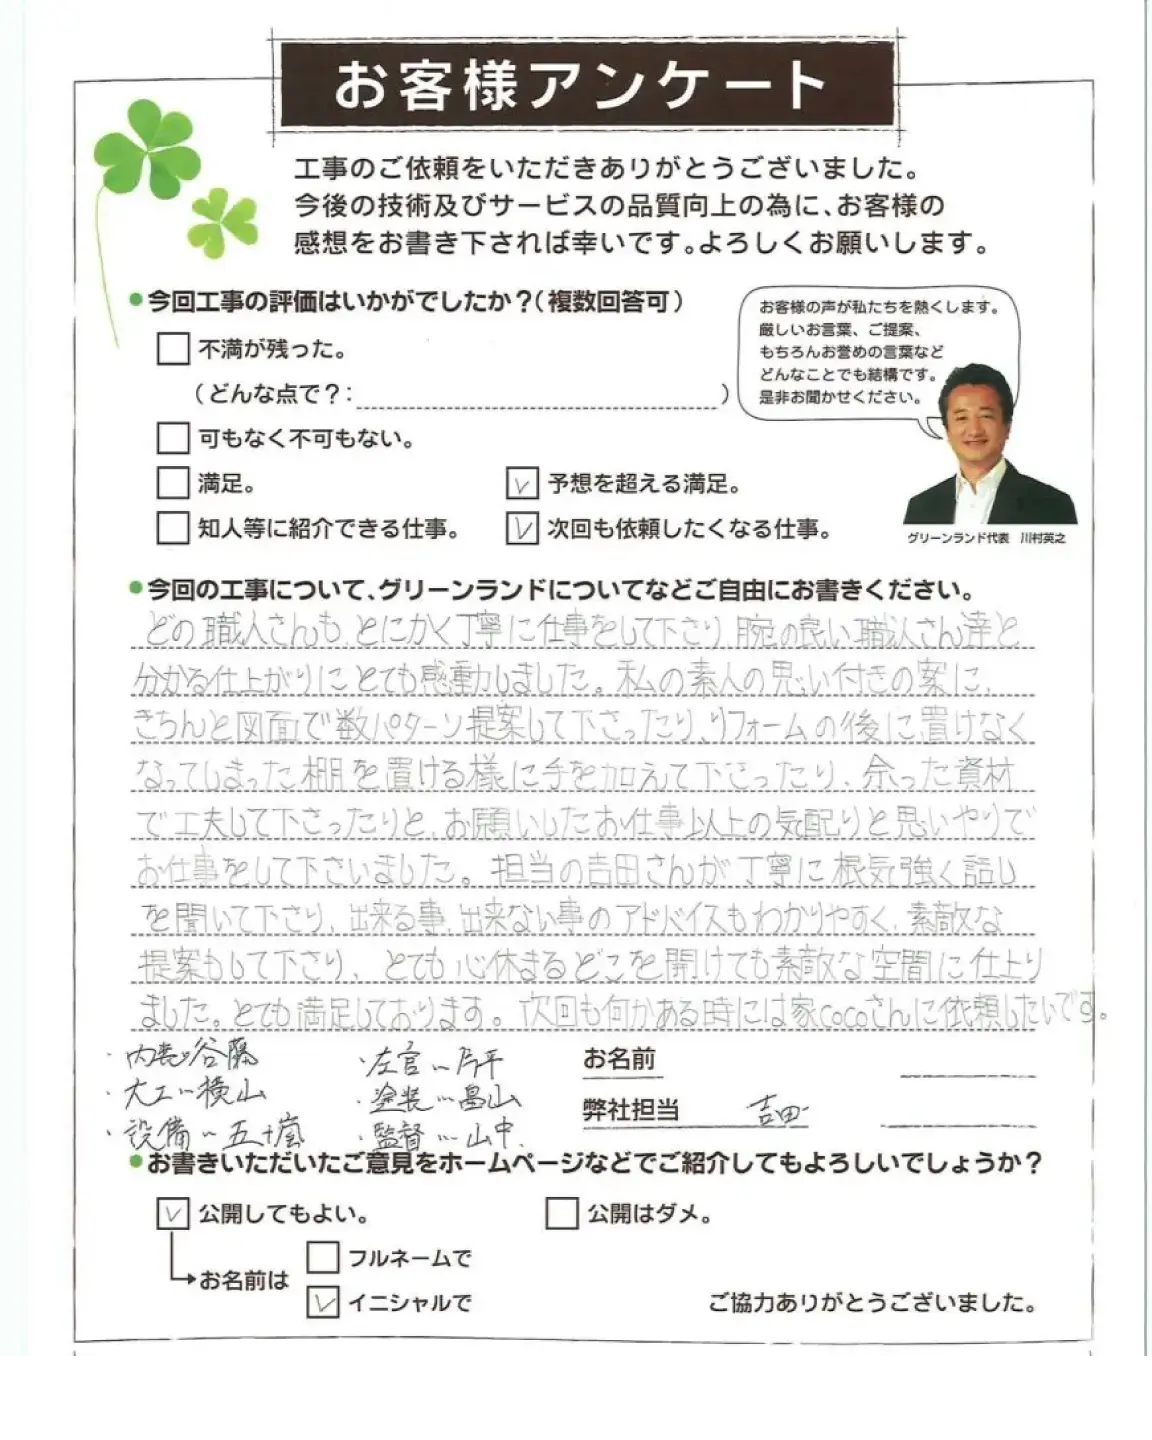 お客様アンケート
工事のご依頼をいただきありがとうございました。
今後の技術及びサービスの品質向上の為に、お客様の
感想をお書き下されば幸いです。よろしくお願いします。
●今回工事の評価はいかがでしたか?(複数回答可)
お客様の声が私たちを熱くします。
厳しいお言葉、ご提案、
もちろんお誉めの言葉など
どんなことでも結構です。
是非お聞かせください。
不満が残った。
(どんな点で?: )
可もなく不可もない。
満足。 予想を超える満足。
知人等に紹介できる仕事。 次回も依頼したくなる仕事。
グリーンランド代表 川村英之
●今回の工事について、グリーンランドについてなどご自由にお書きください。
どの職人さんも、とにかく丁寧に仕事をして下さり、腕の良い職人さん達と
分かる仕上がりにとても感動しました。私の素人の思い付きの案に、
きちんと図面で数パターン提案して下さったり、リフォームの後に置けなく
なってしまった棚を置ける様に手を加えて下さったり、余った資材
で工夫して下さったりと、お願いしたお仕事以上の気配りと思いやりで
お仕事をして下さいました。担当の吉田さんが丁寧に根気強く話し
を聞いて下さり、出来る事、出来ない事のアドバイスもわかりやすく、素敵な
提案もして下さり、とても心休まるどこを開けても素敵な空間に仕上り
ました。とても満足しております。次回も何かある時には家cocoさんに依頼したいです。
・内装〜谷藤 ・左官〜片平
・大工〜横山 ・塗装〜畠山
・設備〜五十嵐 ・監督〜山中
お名前
弊社担当 吉田
●お書きいただいたご意見をホームページなどでご紹介してもよろしいでしょうか?
公開してもよい。 公開はダメ。
お名前は
フルネームで
イニシャルで
ご協力ありがとうございました。